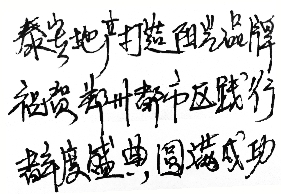 泰宏地产打造阳光品牌
祝贺郑州都市区践行
者年度盛典圆满成功